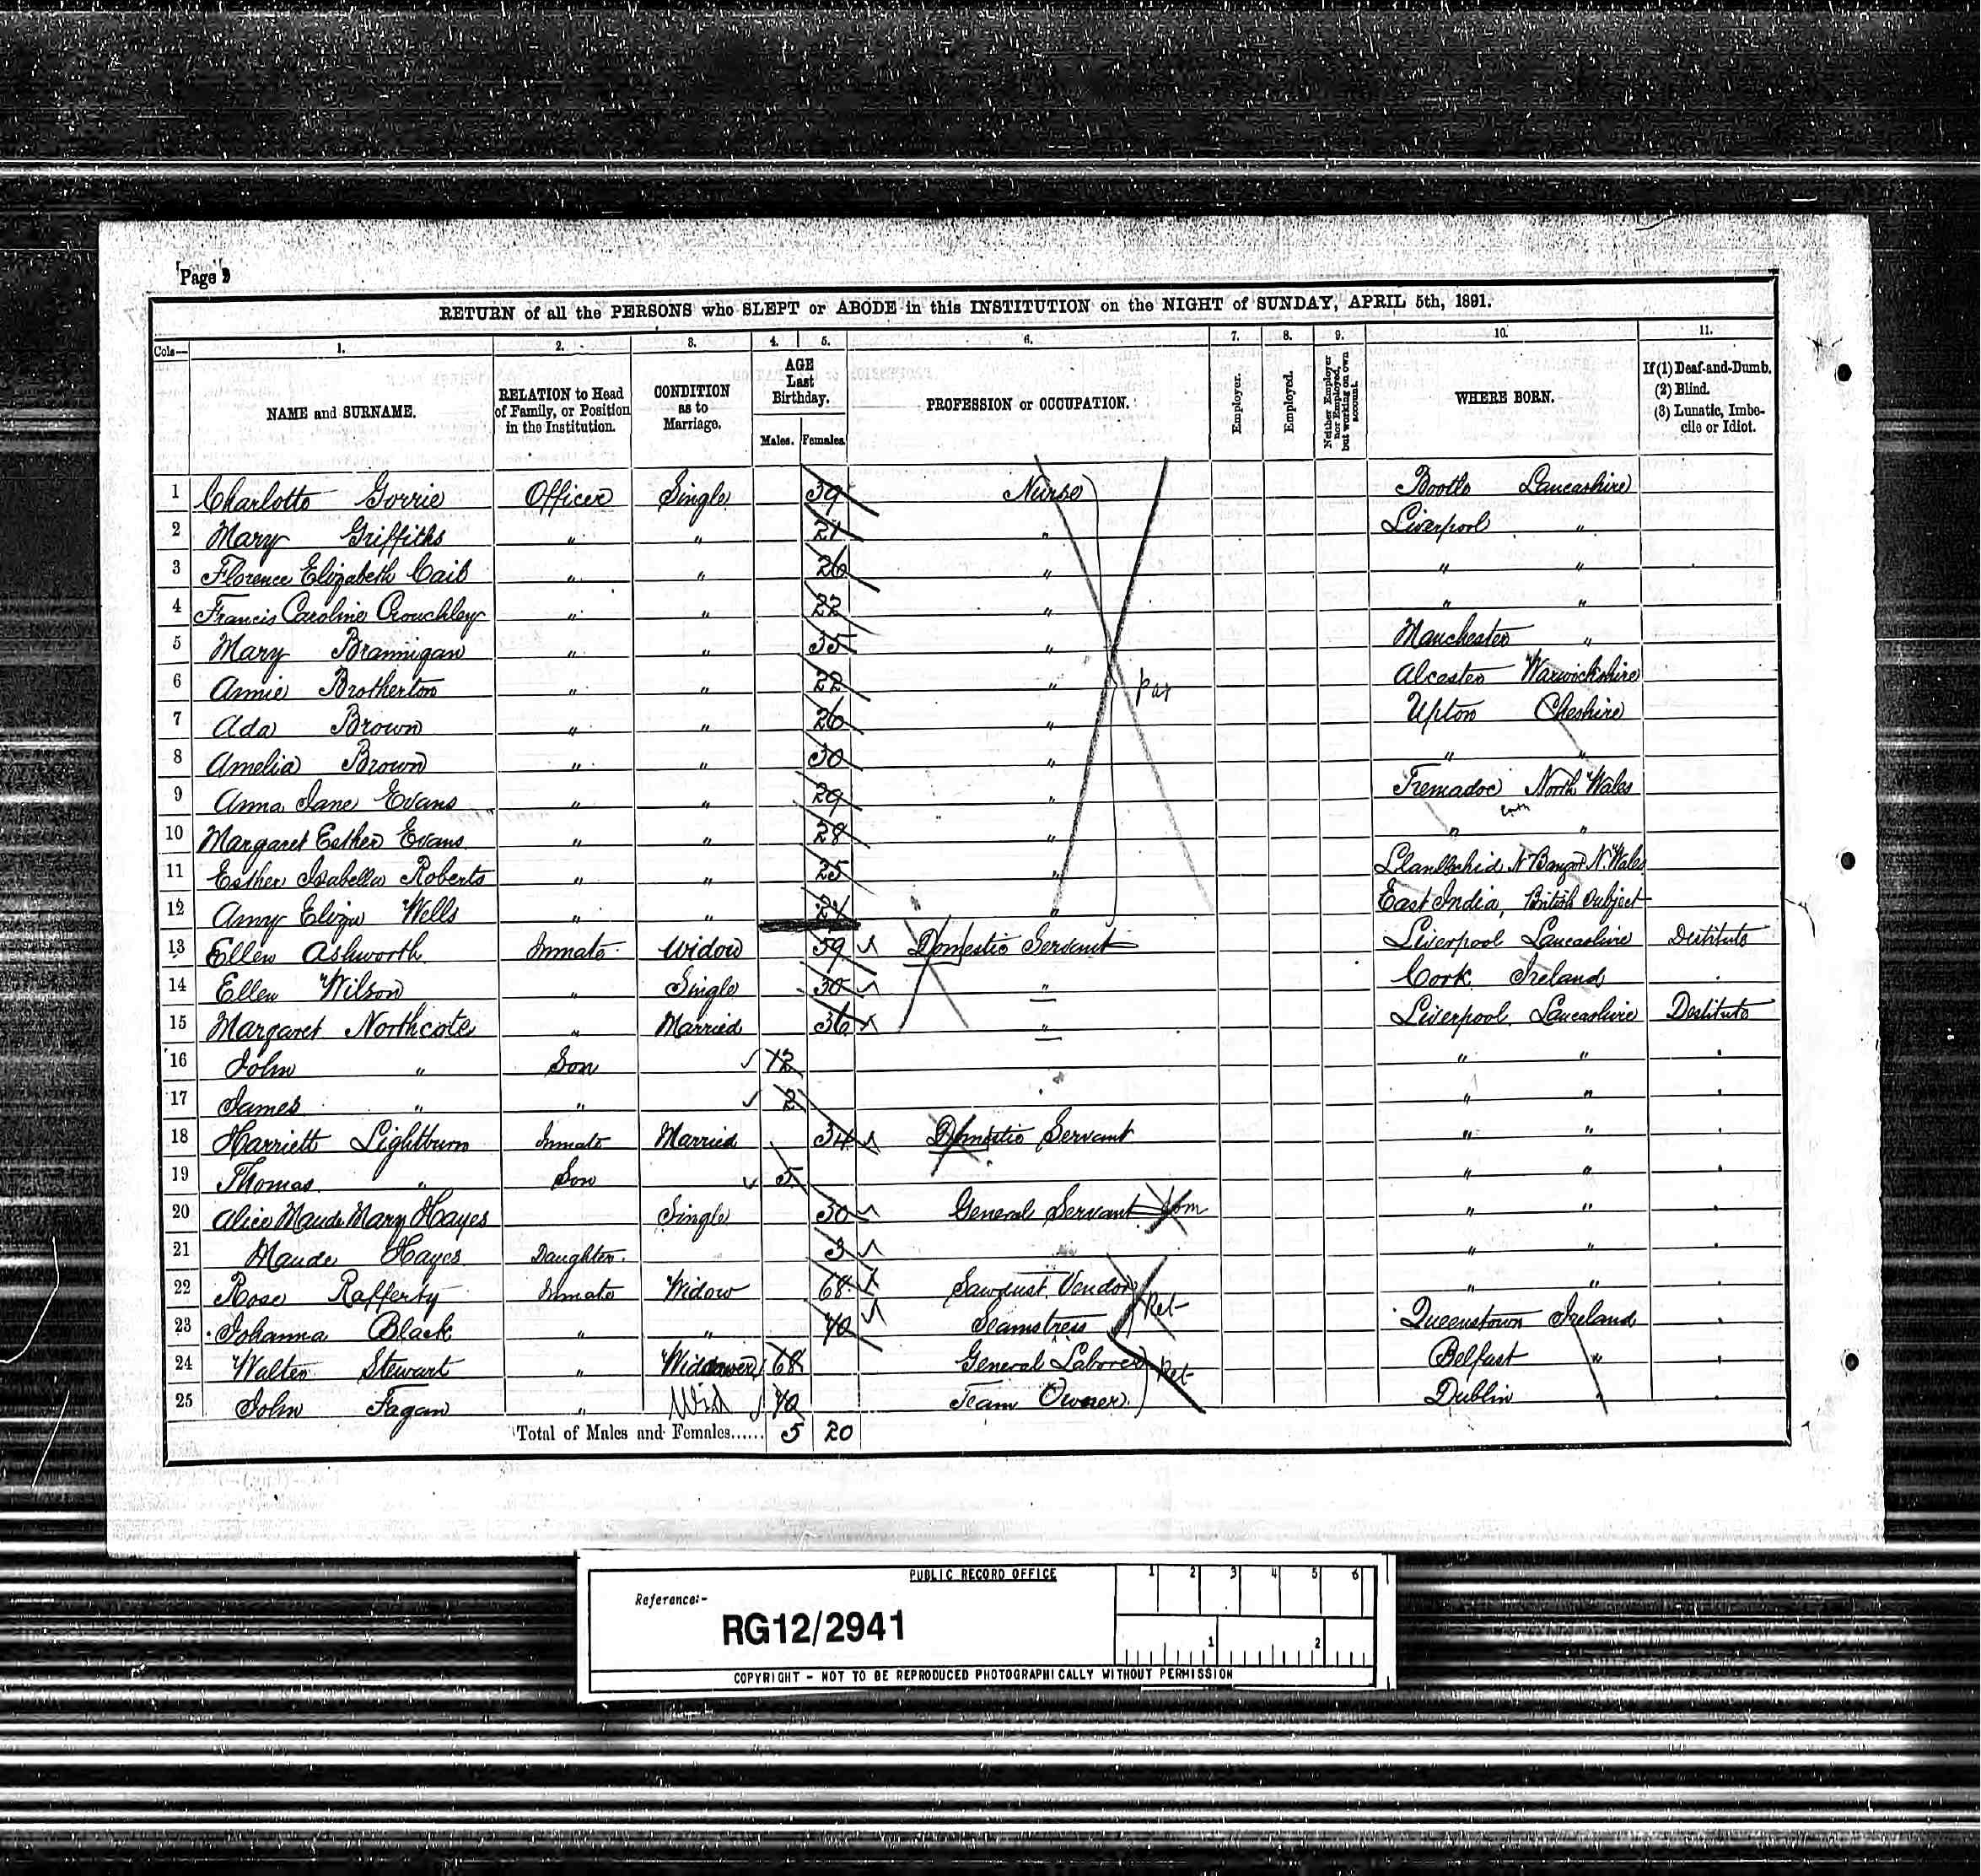 Page
RETURN of all the PERSONS who SLEPT or ABODE in this INSTITUTION on the NIGHT of SUNDAY, APRIL 5th, 1891.
Cols— 1. 2. 3. 4. 5. 6. 7. 8. 9. 10. 11.
NAME and SURNAME. RELATION to Head of Family, or Position in the Institution. CONDITION as to Marriage. AGE Last Birthday. Males. Females. PROFESSION or OCCUPATION. Employer. Employed. Neither Employer nor Employed, but working on own account. WHERE BORN. If (1) Deaf-and-Dumb. (2) Blind. (3) Lunatic, Imbecile or Idiot.
1 Charlotte Gorrie Officer Single 39 Nurse Bootle Lancashire
2 Mary Griffiths " " 21 " Liverpool "
3 Florence Elizabeth " " 26 " " "
4 Francis Caroline Crouchley " " 22 " " "
5 Mary Brannigan " " 35 " Manchester "
6 Annie Brotherton " " 22 " Alcester Warwickshire
7 Ada Brown " " 26 " Upton Cheshire
8 Amelia Brown " " 30 " " "
9 Anna Jane Evans " " 29 " Tremadoc North Wales
10 Margaret Esther Evans " " 28 " " "
11 Esther Isabella Roberts " " 25 " Llanllechid Nr Bangor N. Wales
12 Amy Eliza Wells " " " East India, British Subject
13 Ellen Ashworth Inmate Widow 59 Domestic Servant Liverpool Lancashire Destitute
14 Ellen Wilson " Single 30 " Cork Ireland
15 Margaret Northcote " Married 36 " Liverpool Lancashire Destitute
16 John " Son 12 " "
17 James " " 2 " "
18 Harriett Lightburn Inmate Married 34 Domestic Servant " "
19 Thomas " Son 5 " "
20 Alice Maude Mary Hayes Single 30 General Servant Dom " "
21 Maude Hayes Daughter 3 " "
22 Rose Rafferty Inmate Widow 68 Sawdust Vendor " "
23 Johanna Black " " 70 Seamstress Ret Queenstown Ireland
24 Walter Stewart " Widower 68 General Laborer Ret Belfast "
25 John Fagan " Wid 70 Team Owner Dublin "
Total of Males and Females...... 5 20
PUBLIC RECORD OFFICE
Reference:-
RG12/2941
1 2 3 4 5 6
1 2
COPYRIGHT - NOT TO BE REPRODUCED PHOTOGRAPHICALLY WITHOUT PERMISSION